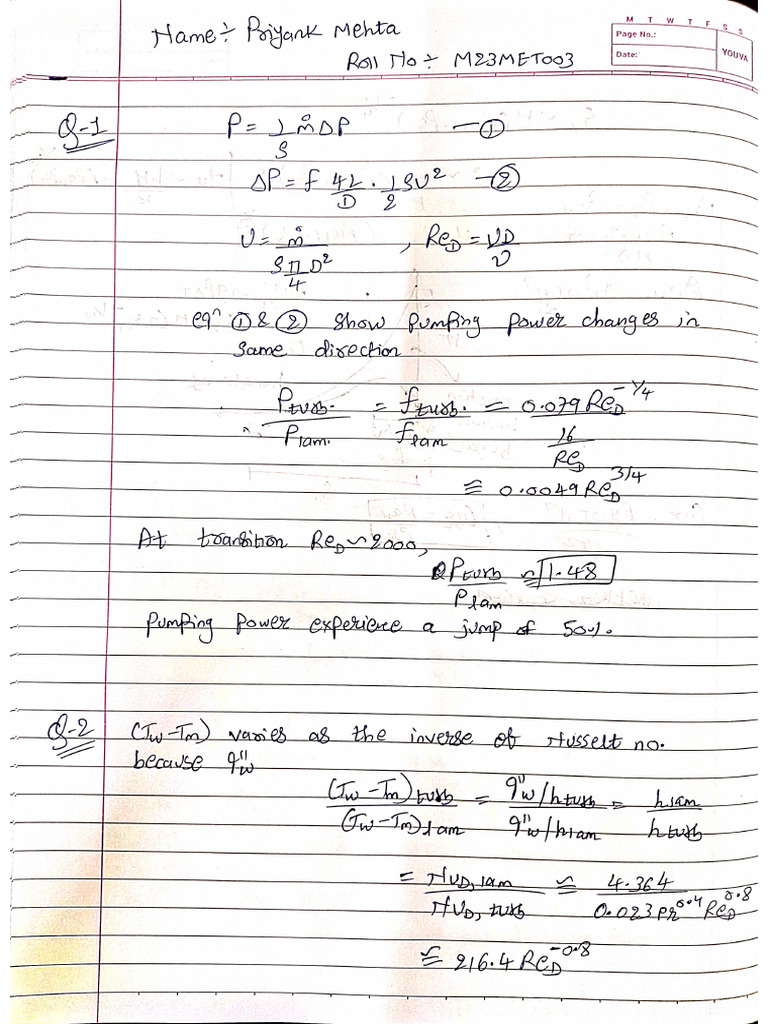 Name ÷ Priyank Mehta
Roll No ÷ M23MET003
M T W T F S S
Page No.:
Date:
YOUVA
Q-1
P = 1/ρ ṁ ΔP —①
ΔP = f 4L/D · 1/2 ρU² —②
U = ṁ / (ρ π/4 D²) , Re_D = UD/ν
eqⁿ ① & ② show pumping power changes in
same direction.
P_turb. / P_lam. = f_turb. / f_lam = 0.079 Re_D^(-1/4) / (16/Re_D)
≅ 0.0049 Re_D^(3/4)
At transition Re_D ~ 2000,
P_turb / P_lam ≅ 1.48
Pumping Power experience a jump of 50%.
Q-2
(Tw-Tm) varies as the inverse of Nusselt no.
because q''w
(Tw-Tm)turb / (Tw-Tm)lam = q''w/hturb / q''w/hlam = hlam / hturb
= Nu_D,lam / Nu_D,turb ≅ 4.364 / 0.023 Pr^0.4 Re_D^0.8
≅ 216.4 Re_D^-0.8